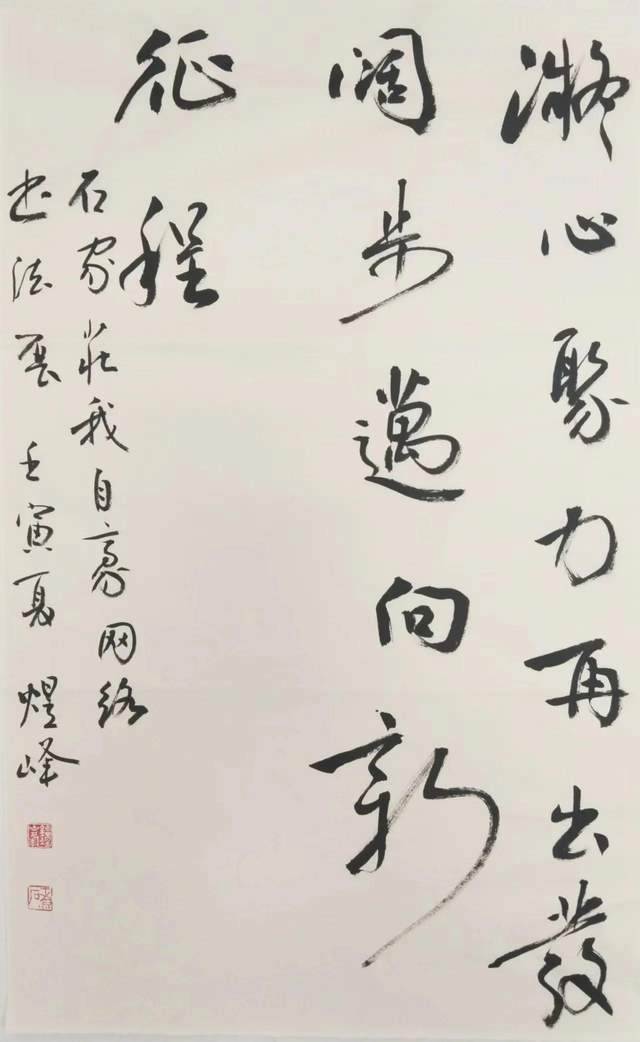 凝心聚力再出發
阔步邁向新
征程
石家庄我自豪网络
书法展 壬寅夏 煜峰